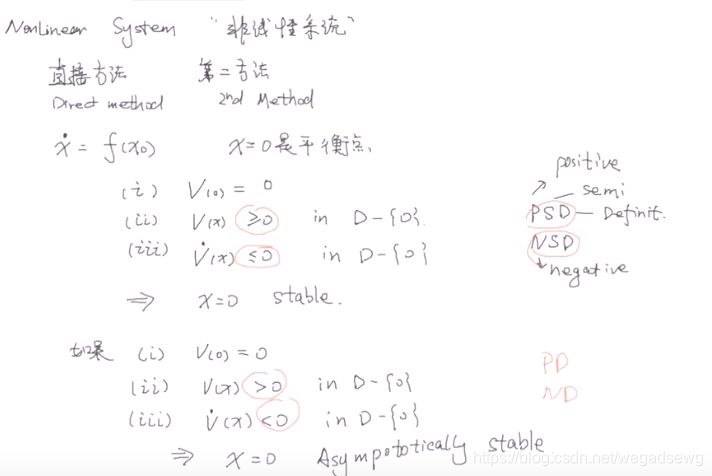 Nonlinear System "非线性系统"
直接方法 第二方法
Direct method 2nd Method
ẋ = f(x₀) x=0是平衡点
(i) V(0) = 0
(ii) V(x) ≥0 in D-{0}
(iii) V̇(x) ≤0 in D-{0}
⇒ x=0 stable.
positive
semi
PSD — Definit.
NSD
negative
如果 (i) V(0) = 0
(ii) V(x) >0 in D-{0}
(iii) V̇(x) <0 in D-{0}
⇒ x=0 Asympototically stable
PD
ND
https://blog.csdn.net/wegadsewg